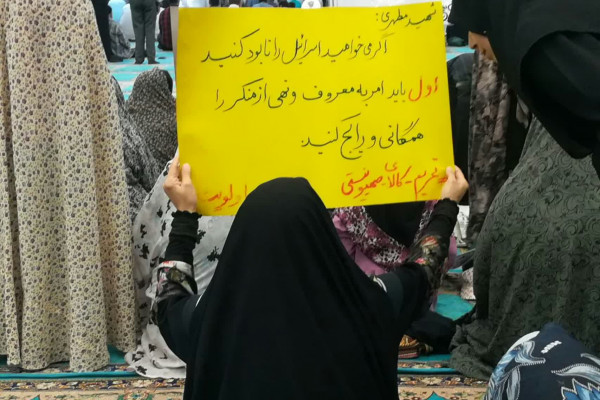 شهید مطهری:
اگر می‌خواهید اسرائیل را نابود کنید
اول باید امر به معروف و نهی از منکر را
همگانی و رایج کنید.
تحریم_کالای_صهیونیستی